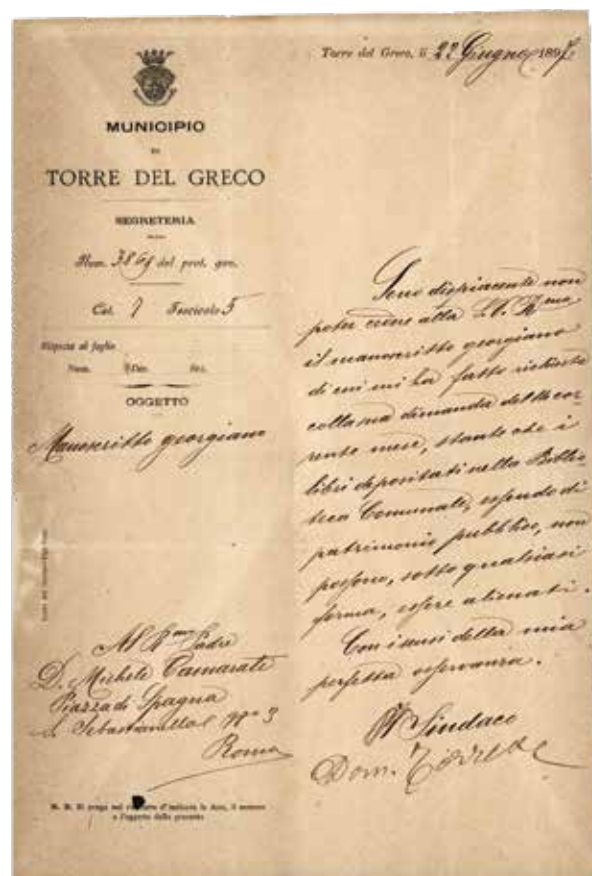 MUNICIPIO
DI
TORRE DEL GRECO
SEGRETERIA
Num. 3869 del prot. gen.
Cat. 7 Fascicolo 5
Risposta al foglio
Num. Div. Sez.
OGGETTO
Manoscritto georgiano
Al R.mo Padre
D. Michele Tamarati
Piazza di Spagna
S. Sebastianello nº 3
Roma
N. B. Si prega nel d'indicare la data, il numero
e l'oggetto della presente
Torre del Greco, li 22 Giugno 1897
Sono dispiacente non
poter cedere alla S. V. R.ma
il manoscritto georgiano
di cui mi ha fatto richiesta
colla sua dimanda del 14 cor-
rente mese, stante che i
libri depositati nella Biblio-
teca Comunale, essendo di
patrimonio pubblico, non
possono, sotto qualsiasi
forma, essere alienati.
Con i sensi della mia
perfetta osservanza.
Il Sindaco
Dom.